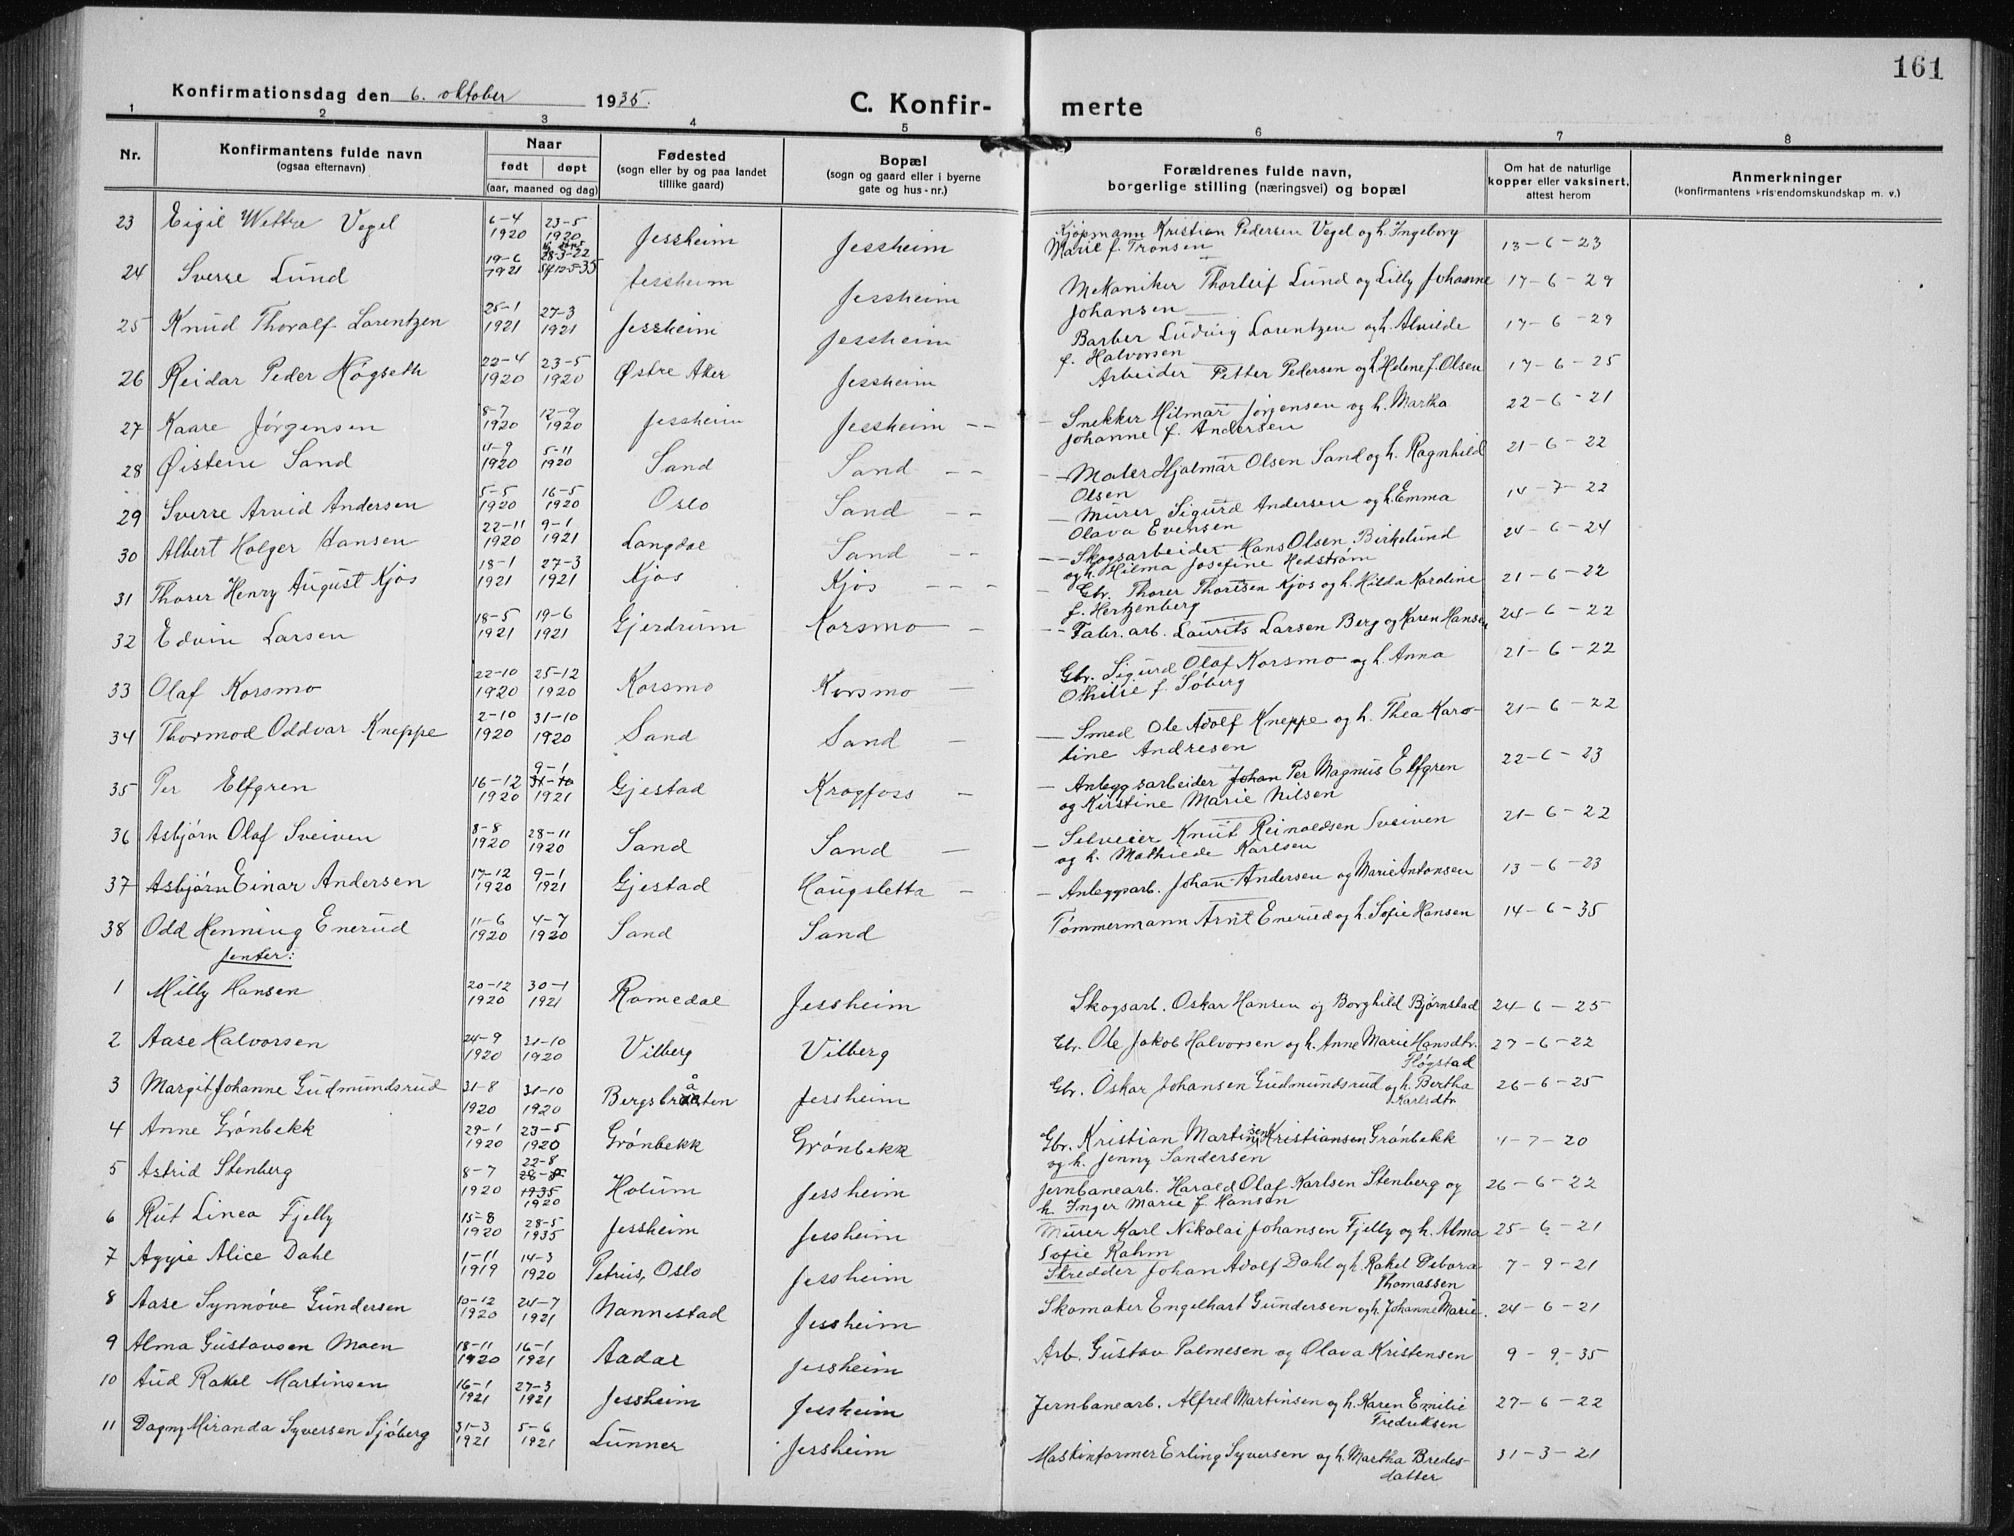 161
Konfirmationsdag den 6. oktober 1935.
C. Konfir- merte
1 2 3 4 5 6 7 8
Nr. Konfirmantens fulde navn (ogsaa efternavn) Naar født døpt (aar, maaned og dag) Fødested (sogn eller by og paa landet tillike gaard) Bopæl (sogn og gaard eller i byerne gate og hus-nr.) Forældrenes fulde navn, borgerlige stilling (næringsvei) og bopæl Om hat de naturlige kopper eller vaksinert, attest herom Anmerkninger (konfirmantens kristendomskundskap m. v.)
23 Eigil Wettre Vegel 6-4 1920 23-5 1920 Jessheim Jessheim Kjøpmann Kristian Pedersen Vegel og h. Ingeborg Marie f. Tronsen 13-6-23
24 Sverre Lund 19-6 1921 28-3-22 Jessheim Jessheim Mekaniker Thorleif Lund og Lilly Johanne Johansen 17-6-29
25 Knud Thoralf Lorentzen 25-1 1921 27-3 1921 Jessheim Jessheim Barber Ludvig Lorentzen og h. Alvilde f. Halvorsen 17-6-29
26 Reidar Peder Høgseth 22-4 1920 23-5 1920 Østre Aker Jessheim Arbeider Petter Pedersen og h. Helene f. Olsen 17-6-25
27 Kaare Jørgensen 8-7 1920 12-9 1920 Jessheim Jessheim -- - Snekker Hilmar Jørgensen og h. Martha Johanne f. Andersen 22-6-21
28 Øistein Sand 11-9 1920 5-11 1920 Sand Sand -- -- Maler Hjalmar Olsen Sand og h. Ragnhild Olsen 21-6-22
29 Sverre Arvid Andersen 5-5 1920 16-5 1920 Oslo Sand -- - Murer Sigurd Andersen og h. Emma Olava Evensen 14-7-22
30 Albert Holger Hansen 22-11 1920 9-1 1921 Langdal Sand -- -- Skogsarbeider Hans Olsen Birkelund og h. Hilma Josefine Hedstrøm 24-6-24
31 Thorer Henry August Kjos 18-1 1921 27-3 1921 Kjos Kjos --- - Gbr. Thorer Thoresen Kjos og h. Hilda Karoline f. Hertzenberg 21-6-22
32 Edvin Larsen 18-5 1921 19-6 1921 Gjerdrum Korsmo - -- Fabr. arb. Laurits Larsen Berg og Karen Hansen 24-6-22
33 Olaf Korsmo 22-10 1920 25-12 1920 Korsmo Korsmo - Gbr. Sigurd Olaf Korsmo og h. Anna Othilie f. Søberg 21-6-22
34 Thormod Oddvar Kneppe 2-10 1920 31-10 1920 Sand Sand - - Smed Ole Adolf Kneppe og h. Thea Karoline Andresen 21-6-22
35 Per Elfgren 16-12 1920 9-1 31-10 1921 Gjestad Krogfoss - - Anleggsarbeider Johan Per Magnus Elfgren og Kirstine Marie Nilsen 22-6-23
36 Asbjørn Olaf Sveiven 8-8 1920 28-11 1920 Sand Sand - - Selveier Knut Reinoldsen Sveiven og h. Mathilde Karlsen 21-6-22
37 Asbjørn Einar Andersen 17-12 1920 9-1 1921 Gjestad Haugsletta - - Anleggsarb. Johan Andersen og Marie Antonsen 13-6-23
38 Odd Henning Enerud 11-6 1920 4-7 1920 Sand Sand Tømmermann Arnt Enerud og h. Sofie Hansen 14-6-35
Jenter:
1 Milly Hansen 20-12 1920 30-1 1921 Romedal Jessheim Skogsarb. Oskar Hansen og Borghild Bjørnstad 24-6-25
2 Aase Halvorsen 24-9 1920 31-10 1920 Vilberg Vilberg Gbr. Ole Jakob Halvorsen og h. Anne Marie Hansdtr. Fløgstad 27-6-22
3 Margit Johanne Gudmundsrud 31-8 1920 31-10 1920 Bergsbråten Jessheim Gbr. Oskar Johansen Gudmundsrud og h. Bertha Karlsdtr 26-6-25
4 Anne Grønbekk 29-1 1920 23-5 1920 Grønbekk Grønbekk Gbr. Kristian Martinsen Kristiansen Grønbekk og h. Jenny Sandersen 1-7-20
5 Astrid Stenberg 8-7 1920 22-8 28-8 1935 1920 Holum Jessheim Jernbanearb. Harald Olaf Karlsen Stenberg og h. Inger Marie f. Hansen 26-6-22
6 Rut Linea Fjelly 15-8 1920 28-5 1935 Jessheim Jessheim Murer Karl Nikolai Johansen Fjelly og h. Alma Sofie Rahm 25-6-21
7 Aggie Alice Dahl 1-11 1919 14-3 1920 Petrus, Oslo Jessheim Skredder Johan Adolf Dahl og h. Rakel Debora Thomassen 7-9-21
8 Aase Synnøve Gundersen 10-12 1920 24-7 1921 Nannestad Jessheim Skomaker Engelhart Gundersen og h. Johanne Marie. 24-6-21
9 Alma Gustavsen Moen 18-11 1920 16-1 1921 Aadal Jessheim Arb. Gustav Palmesen og Olava Kristensen 9-9-35
10 Aud Rakel Martinsen 16-1 1921 27-3 1921 Jessheim Jessheim Jernbanearb. Alfred Martinsen og h. Karen Emilie Fredriksen 27-6-22
11 Dagny Miranda Syversen Sjøberg 31-3 1921 5-6 1921 Lunner Jessheim Maskinformer Erling Syversen og h. Martha Bredesdatter 31-3-21